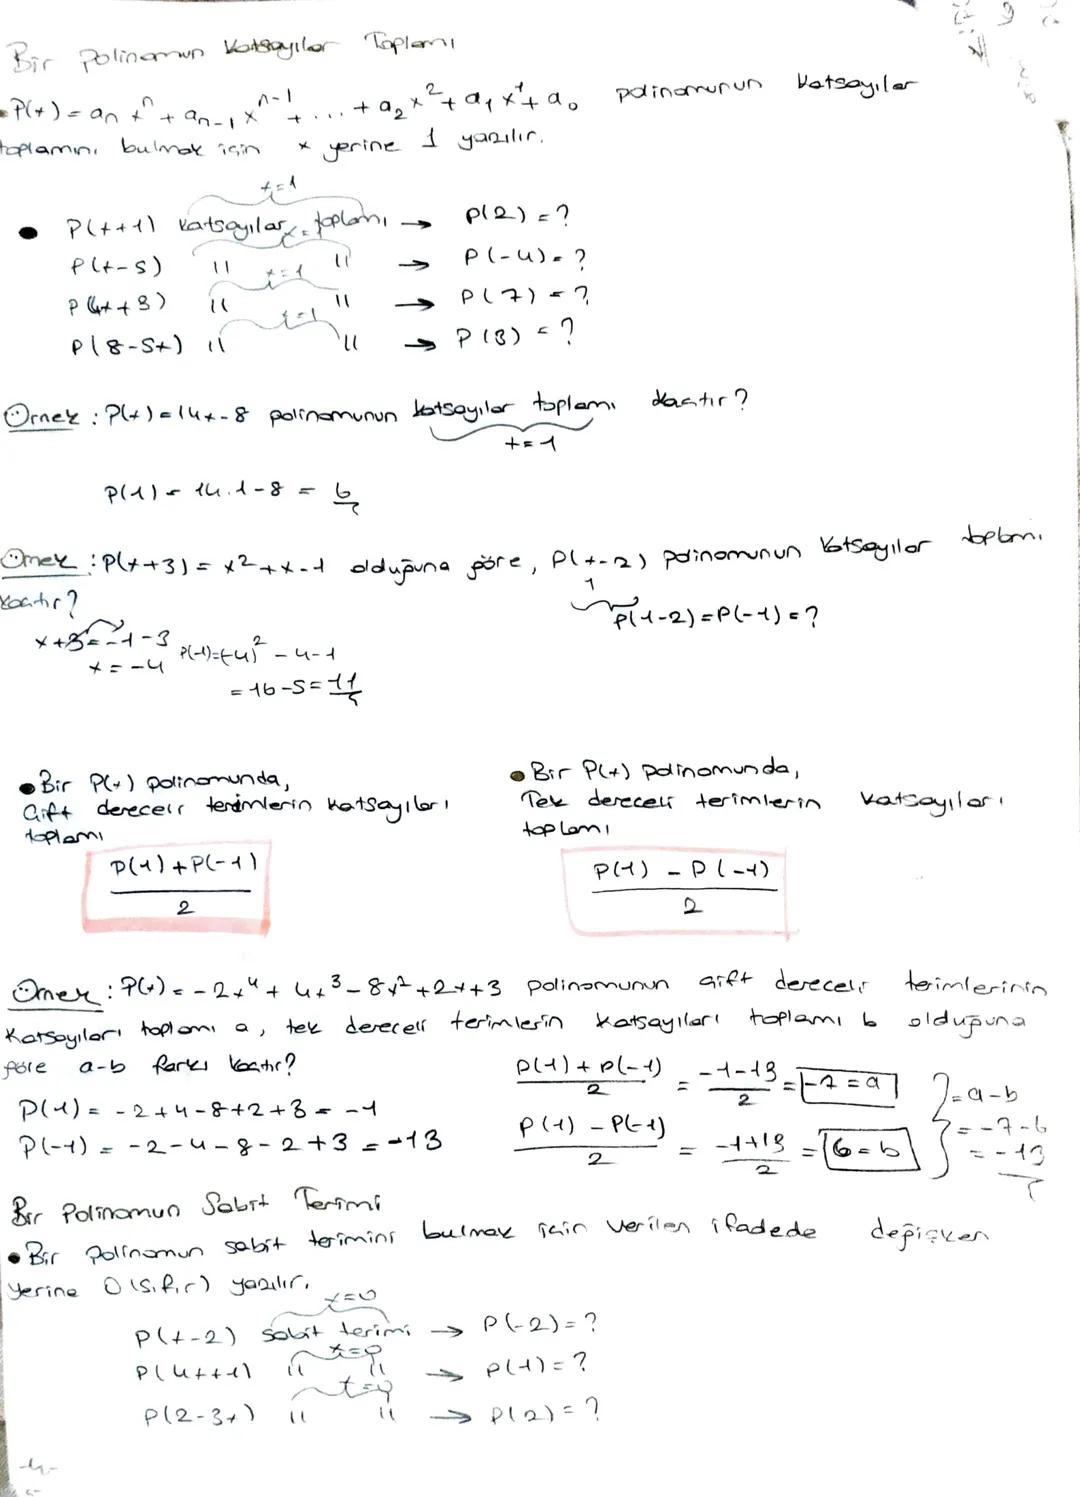 Bir Polinomun Katsayılar Toplamı
• P(x) = aₙxⁿ + aₙ₋₁xⁿ⁻¹ + ... + a₂x² + a₁x¹ + a₀ polinomunun katsayılar
toplamını bulmak için x yerine 1 yazılır.
x=1
• P(x+1) katsayılar toplamı → P(2) = ?
x=1
P(x-5) " " → P(-4) = ?
x=1
P(4x+3) " " → P(7) = ?
x=1
P(8-5x) " " → P(3) = ?
Örnek : P(x) = 14x-8 polinomunun katsayılar toplamı kaçtır?
x=1
P(1) = 14.1-8 = 6
Örnek : P(x+3) = x²+x-1 olduğuna göre, P(x-2) polinomunun katsayılar toplamı
kaçtır?
1
P(1-2) = P(-1) = ?
x+3 = -1-3
x = -4
P(-1) = (-4)² - 4 - 1
= 16-5 = 11
• Bir P(x) polinomunda,
Çift dereceli terimlerin katsayıları
toplamı
P(1) + P(-1)
2
• Bir P(x) polinomunda,
Tek dereceli terimlerin katsayıları
toplamı
P(1) - P(-1)
2
Örnek : P(x) = -2x⁴ + 4x³ - 8x² + 2x + 3 polinomunun çift dereceli terimlerinin
Katsayıları toplamı a, tek dereceli terimlerin katsayıları toplamı b olduğuna
göre a-b farkı kaçtır?
P(1) = -2+4-8+2+3 = -1
P(-1) = -2-4-8-2+3 = -13
P(1) + P(-1) / 2 = -1-13 / 2 = -7 = a
P(1) - P(-1) / 2 = -1+13 / 2 = 6 = b
} = a-b
= -7-6
= -13
Bir Polinomun Sabit Terimi
• Bir Polinomun sabit terimini bulmak için verilen ifadede değişken
yerine 0 (sıfır) yazılır.
x=0
P(x-2) sabit terimi → P(-2) = ?
x=0
P(4x+1) " " → P(1) = ?
x=0
P(2-3x) " " → P(2) = ?